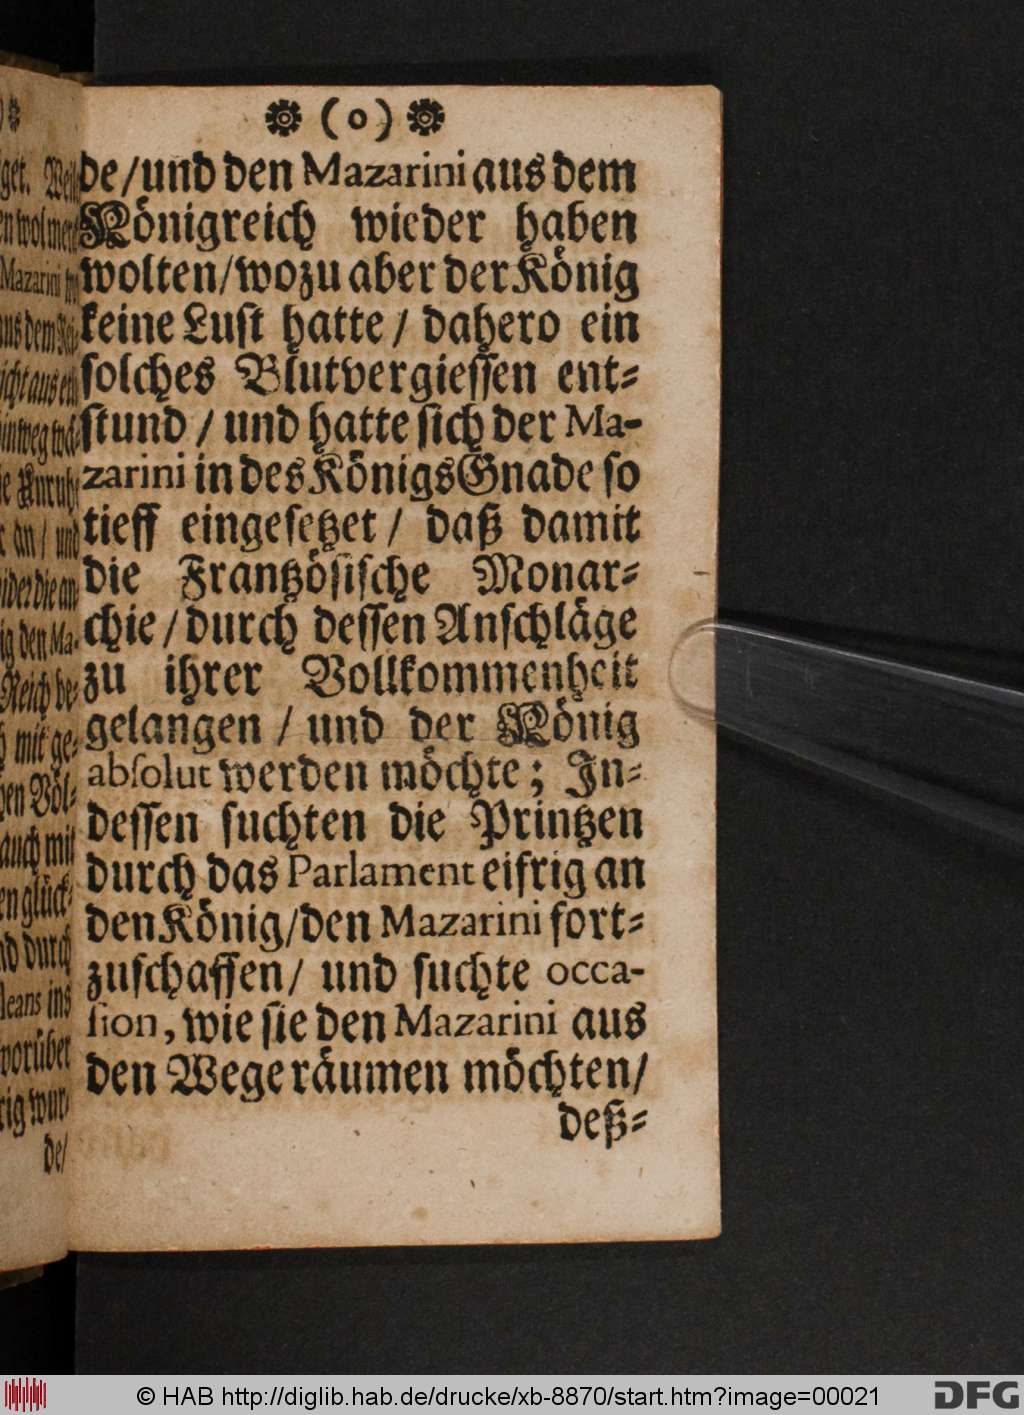 ❁ ( o ) ❁
de/und den Mazarini aus dem
Königreich wieder haben
wolten/wozu aber der König
keine Lust hatte / dahero ein
solches Blutvergiessen ent-
stund / und hatte sich der Ma-
zarini in des Königs Gnade so
tieff eingesetzet / daß damit
die Frantzösische Monar-
chie / durch dessen Anschläge
zu ihrer Vollkommenheit
gelangen / und der König
absolut werden möchte; In-
dessen suchten die Printzen
durch das Parlament eifrig an
den König/den Mazarini fort-
zuschaffen/ und suchte occa-
sion, wie sie den Mazarini aus
den Wege räumen möchten/
deß-
get. Weil
Mazarini
aus dem
ig den Ma-
Reich be-
mit ge-
Völ-
auch mit
glück-
durch
leans ins
vorüber
rig wur-
de/
© HAB http://diglib.hab.de/drucke/xb-8870/start.htm?image=00021
DFG